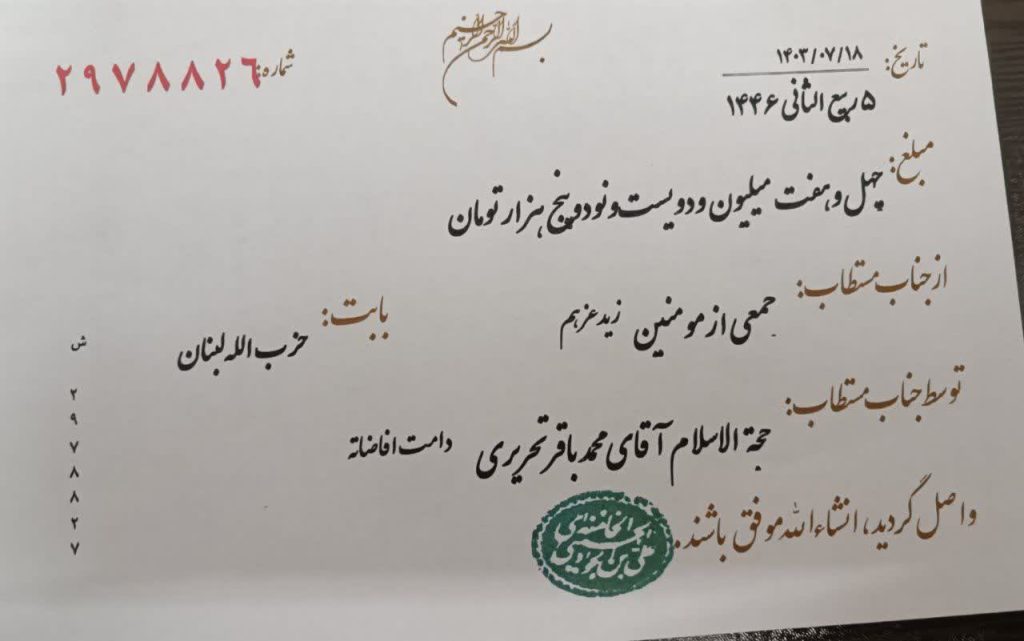 بسم الله الرحمن الرحیم
تاریخ: ۱۴۰۳/۰۷/۱۸
۵ ربیع الثانی ۱۴۴۶
شماره: ۲۹۷۸۸۲۶
مبلغ: چهل و هفت میلیون و دویست و نود و پنج هزار تومان
از جناب مستطاب: جمعی از مومنین زید عزهم
بابت: حزب الله لبنان
توسط جناب مستطاب: حجة الاسلام آقای محمد باقر تحریری دامت افاضاته
واصل گردید، انشاء الله موفق باشند.
ش
۲
۹
۷
۸
۸
۲
۷